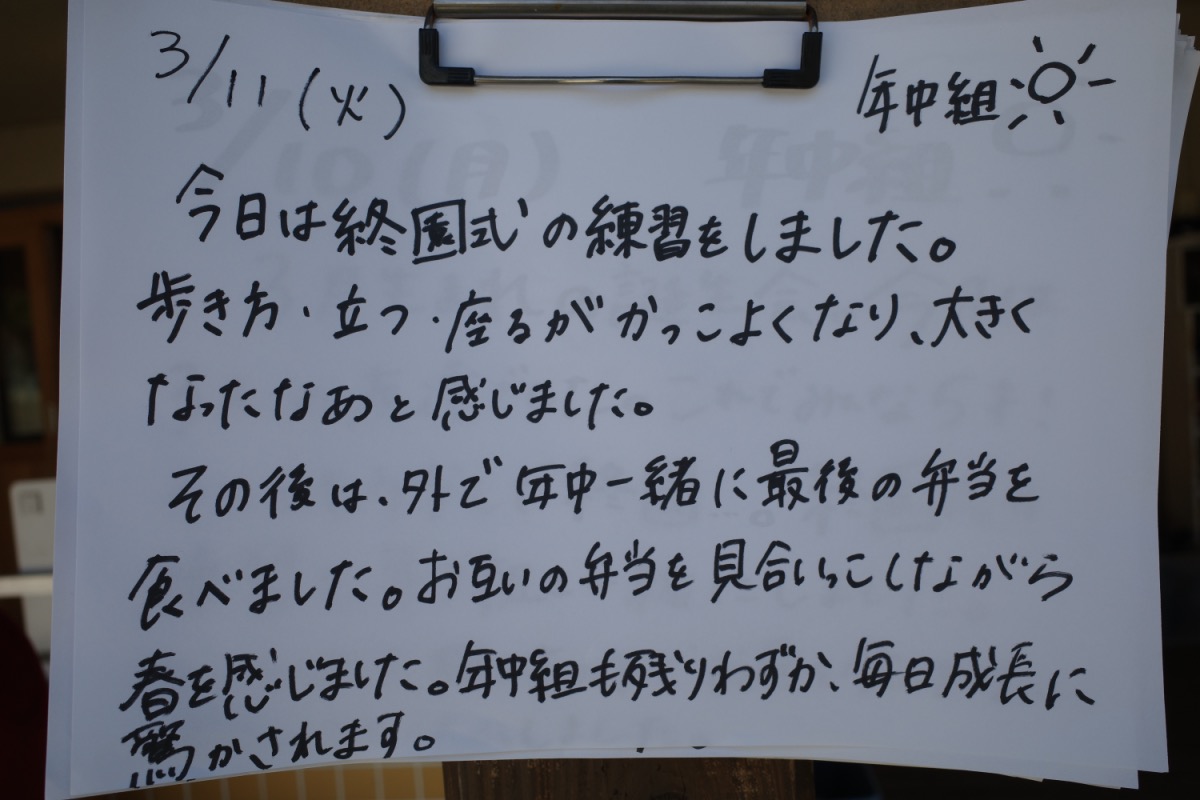 3/11(火)
年中組
今日は終園式の練習をしました。
歩き方・立つ・座るがかっこよくなり、大きく
なったなあと感じました。
その後は、外で年中一緒に最後の弁当を
食べました。お互いの弁当を見合いっこしながら
春を感じました。年中組も残りわずか、毎日成長に
驚かされます。